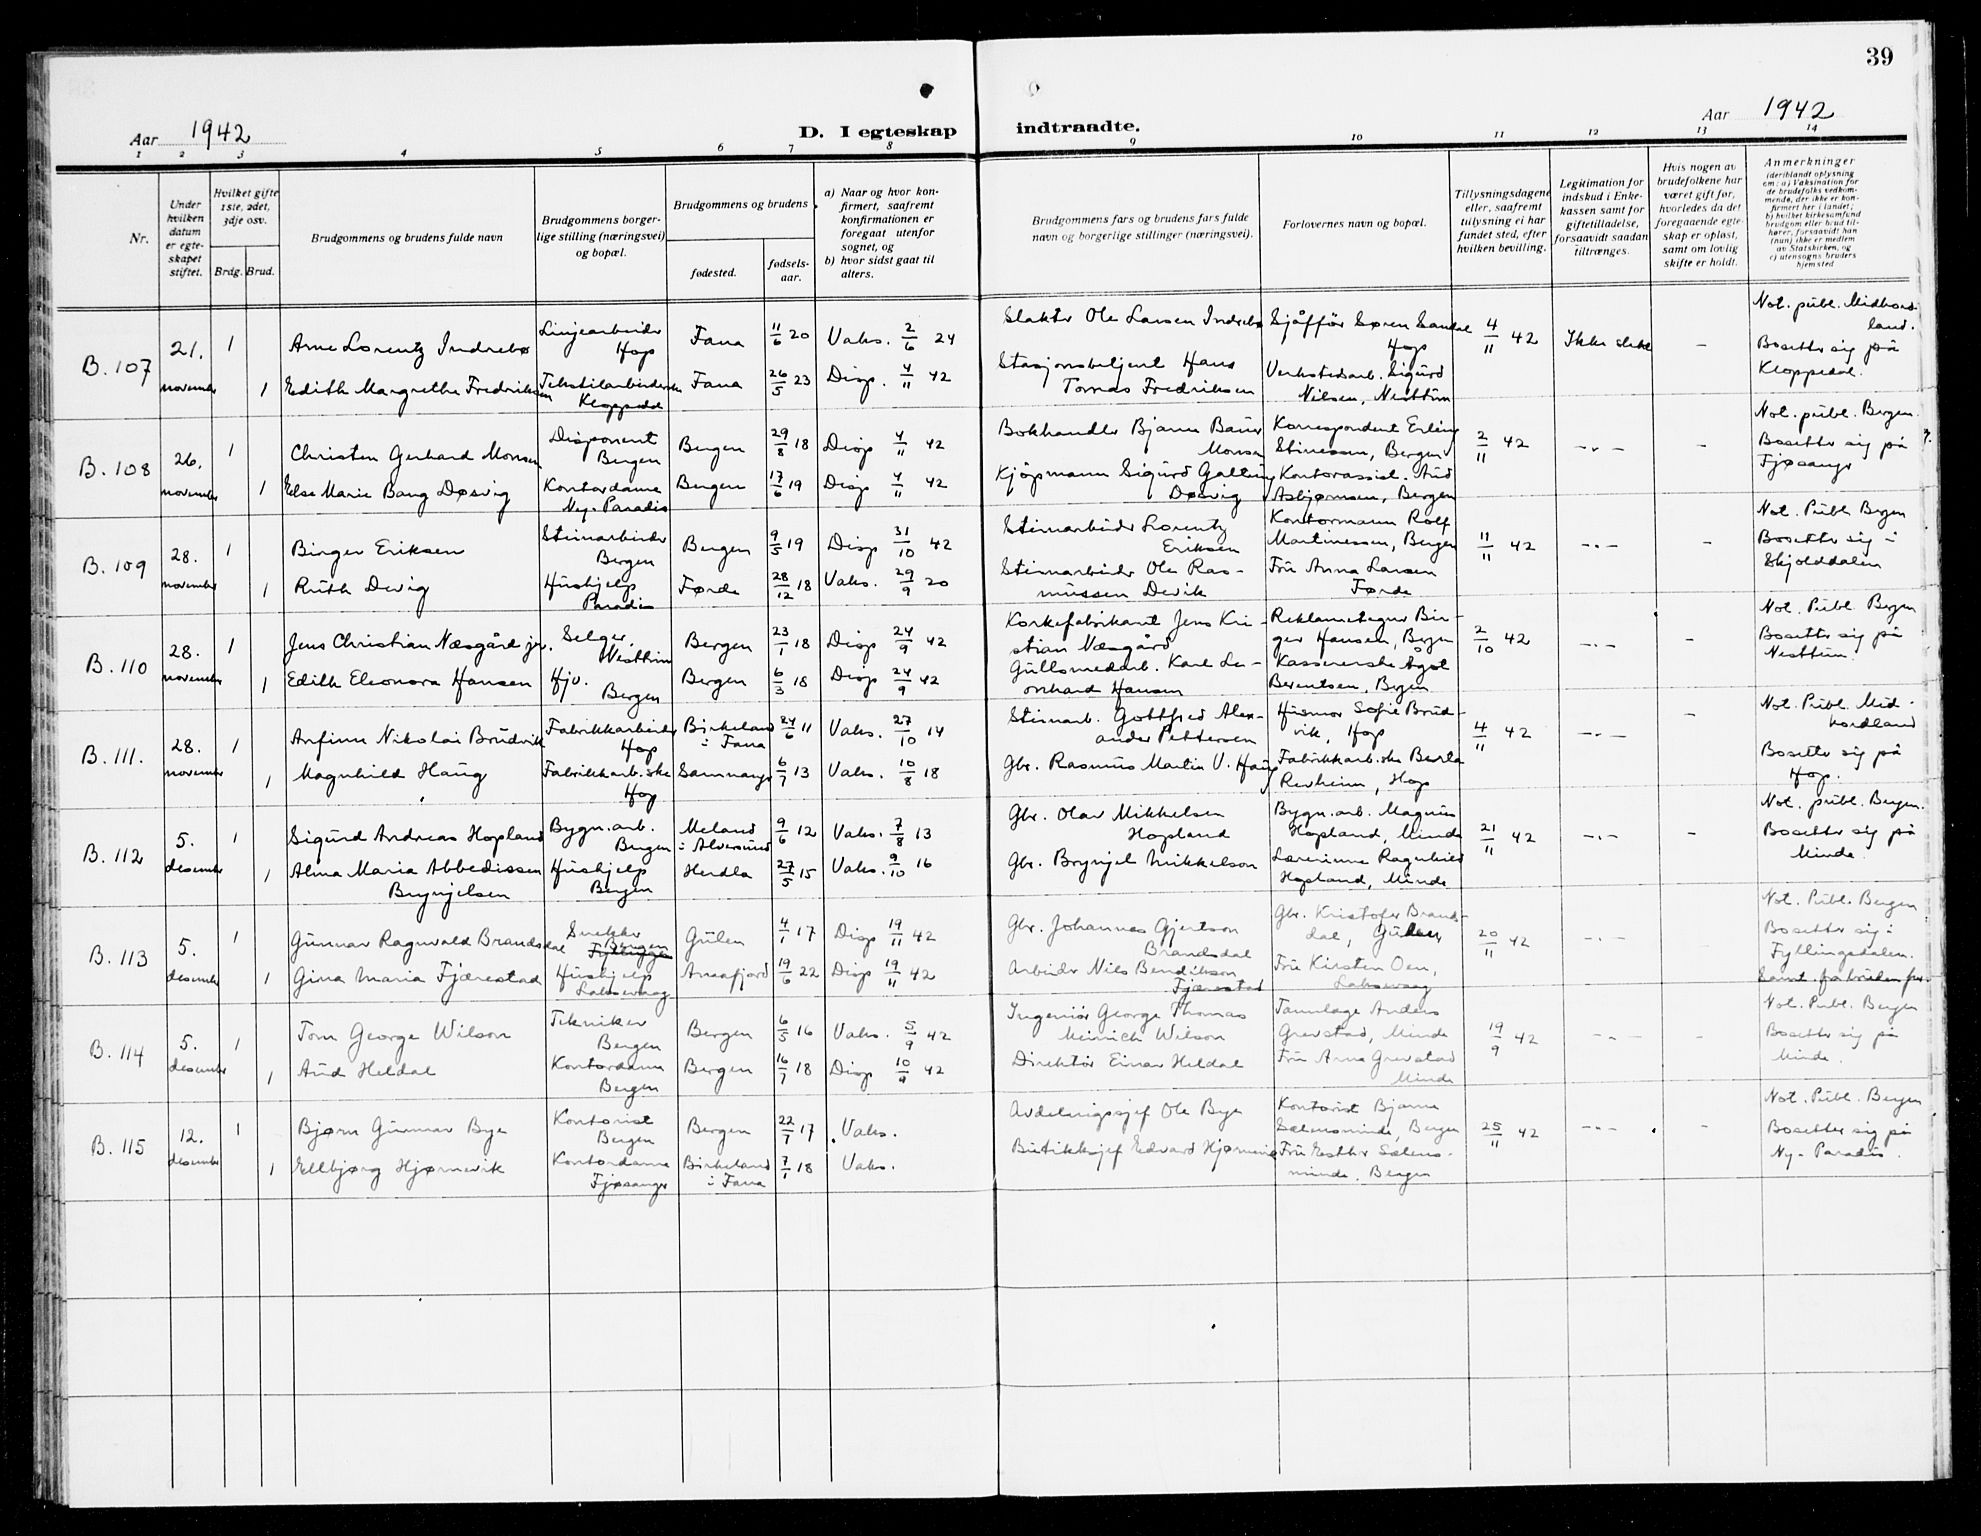 39
Aar 1942
D. I egteskap indtraadte.
Aar 1942
1 2 3 4 5 6 7 8 9 10 11 12 13 14
Nr.
Under hvilken datum er egteskapet stiftet.
Hvilket gifte 1ste, 2det, 3dje osv.
Brdg. Brud.
Brudgommens og brudens fulde navn
Brudgommens borgerlige stilling (næringsvei) og bopæl.
Brudgommens og brudens
fødested.
fødselsaar.
a) Naar og hvor konfirmert, saafremt konfirmationen er foregaat utenfor sognet, og
b) hvor sidst gaat til alters.
Brudgommens fars og brudens fars fulde navn og borgerlige stillinger (næringsvei).
Forlovernes navn og bopæl.
Tillysningsdagene eller, saafremt tillysning ei har fundet sted, efter hvilken bevilling.
Legitimation for indskud i Enkekassen samt for giftetilladelse, forsaavidt saadan tiltrænges.
Hvis nogen av brudefolkene har været gift før, hvorledes da det foregaaende egteskap er opløst, samt om lovlig skifte er holdt.
Anmerkninger
(deriblandt oplysning om: a) Vaksination for de brudefolks vedkommende, der ikke er konfirmert her i landet; b) hvilket kirkesamfund brudgom eller brud tilhører, forsaavidt han (hun) ikke er medlem av Statskirken, og c) utensogns bruders hjemsted
B. 107 21. november 1 Arne Lorentz Indrebø Linjearbeider Hop Fana 11/6 20 Vaks. 2/6 24 Slakter Ole Larsen Indrebø Sjåffør Søren Sandal Hop 4/11 42 Ikke slekt - Not. publ. Midhordland. Bosetter sig på Kloppedal.
1 Edith Margrethe Fredriksen Tekstilarbeiderske Kloppedal Fana 26/5 23 Disp. 4/11 42 Stasjonsbetjent Hans Tomas Fredriksen Verkstedarb. Sigurd Nilsen, Nesttun
B. 108 26. november 1 Christen Gerhard Monsen Disponent Bergen Bergen 29/8 18 Disp 4/11 42 Bokhandler Bjarne Bauer Monsen Korrespondent Erling Stinessen, Bergen 2/11 42 -"- - Not. publ. Bergen. Bosetter sig på Fjøsanger
1 Else Marie Bang Døsvig Kontordame Ny-Paradis Bergen 17/6 19 Disp 4/11 42 Kjøpmann Sigurd Galtung Døsvig Kontorassist. Aud Asbjørnsen, Bergen
B. 109 28. november 1 Birger Eriksen Steinarbeider Bergen Bergen 9/5 19 Disp 31/10 42 Steinarbeider Lorentz Eriksen Kontormann Rolf Martinessen, Bergen 11/11 42 -"- - Not. Publ Bergen Bosetter sig i Skjolddalen
1 Ruth Devig Hushjelp Paradis Førde 28/12 18 Vaks. 29/9 20 Steinarbeider Ole Rasmussen Devik Fru Anna Larsen Førde
B. 110 28. november 1 Jens Christian Næsgård jr. Selger, Nesttun Bergen 23/1 18 Disp 24/9 42 Korkefabrikant Jens Kristian Næsgård Reklametegner Birger Hansen, Bergen 2/10 42 -"- - Not. Publ Bergen Bosetter sig på Nesttun.
1 Edith Eleonora Hansen Hjv. Bergen Bergen 6/3 18 Disp 24/9 42 Gullsmedarb. Karl Leonhard Hansen Kassererske Ågot Berentsen, Bergen
B. 111. 28. november 1 Arfinn Nikolai Brudvik Fabrikkarbeider Hop Birkeland i Fana 24/6 11 Vaks. 27/10 14 Steinarb. Gottfred Alexander Pettersen Husmor Sofie Brudvik, Hop 4/11 42 -"- - Not. Publ. Midhordland Bosetter sig på Hop.
1 Magnhild Haug Fabrikkarb.ske Hop Samnanger 6/7 13 Vaks. 10/8 18 Gbr. Rasmus Martin V. Haug Fabrikkarb.ske Berta Revheim, Hop
B. 112 5. desember 1 Sigurd Andreas Hopland Bygn.arb. Bergen Meland i Alversund 9/6 12 Vaks. 7/8 13 Gbr. Olav Mikkelsen Hopland Bygn.arb. Magnus Hopland, Minde 21/11 42 -"- - Not. publ. Bergen. Bosetter sig på Minde.
1 Alma Maria Abbedissen Brynjelsen Hushjelp Bergen Herdla 27/5 15 Vaks. 9/10 16 Gbr. Brynjel Mikkelson Lærerinne Ragnhild Hopland, Minde
B. 113 5. desember 1 Gunnar Ragnvald Brandsdal Snekker Bergen Gulen 4/1 17 Disp 19/11 42 Gbr. Johannes Gjertson Brandsdal Gbr. Kristofer Brandsdal, Gulen 20/11 42 -"- - Not. Publ. Bergen Bosetter sig i Fyllingsdalen.
1 Gina Maria Fjærestad Hushjelp Laksevaag Arnafjord 19/6 22 Disp 19/11 42 Arbeider Nils Bendikson Fjærestad Fru Kirsten Oen, Laksevaag
B. 114 5. desember 1 Tom George Wilson Tekniker Bergen Bergen 6/5 16 Vaks. 5/9 42 Ingeniør George Thomas Meinich Wilson Tannlæge Anders Grevstad, Minde 19/9 42 -"- - Not. Publ. Bergen Bosetter sig på Minde.
1 Aud Heldal Kontordame Bergen Bergen 16/7 18 Disp 10/9 42 Direktør Einar Heldal Fru Arna Grevstad Minde
B. 115 12. desember 1 Bjørn Gunnar Bye Kontorist Bergen Bergen 22/7 17 Vaks. Avdelingssjef Ole Bye Kontorist Bjarne Salemsminde, Bergen 25/11 42 -"- - Not. Publ. Bergen Bosetter sig på Ny-Paradis.
1 Ellbjørg Hjørnevik Kontordame Fjøsanger Birkeland i Fana 7/1 18 Vaks. Butikksjef Edvard Hjørnevik Fru Esther Salemsminde. Bergen